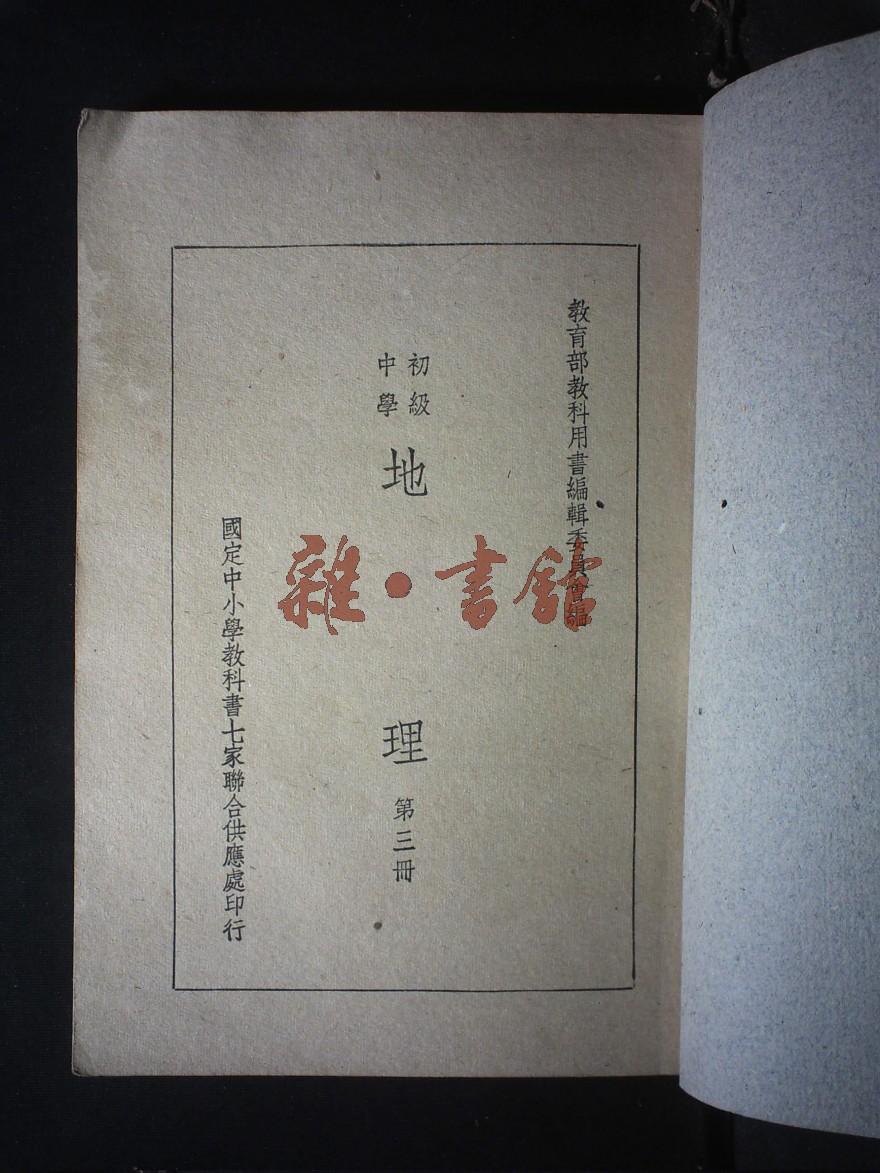 教育部教科用書編輯委員會編
初級
中學
地理
第三冊
國定中小學教科書七家聯合供應處印行
雜·書館